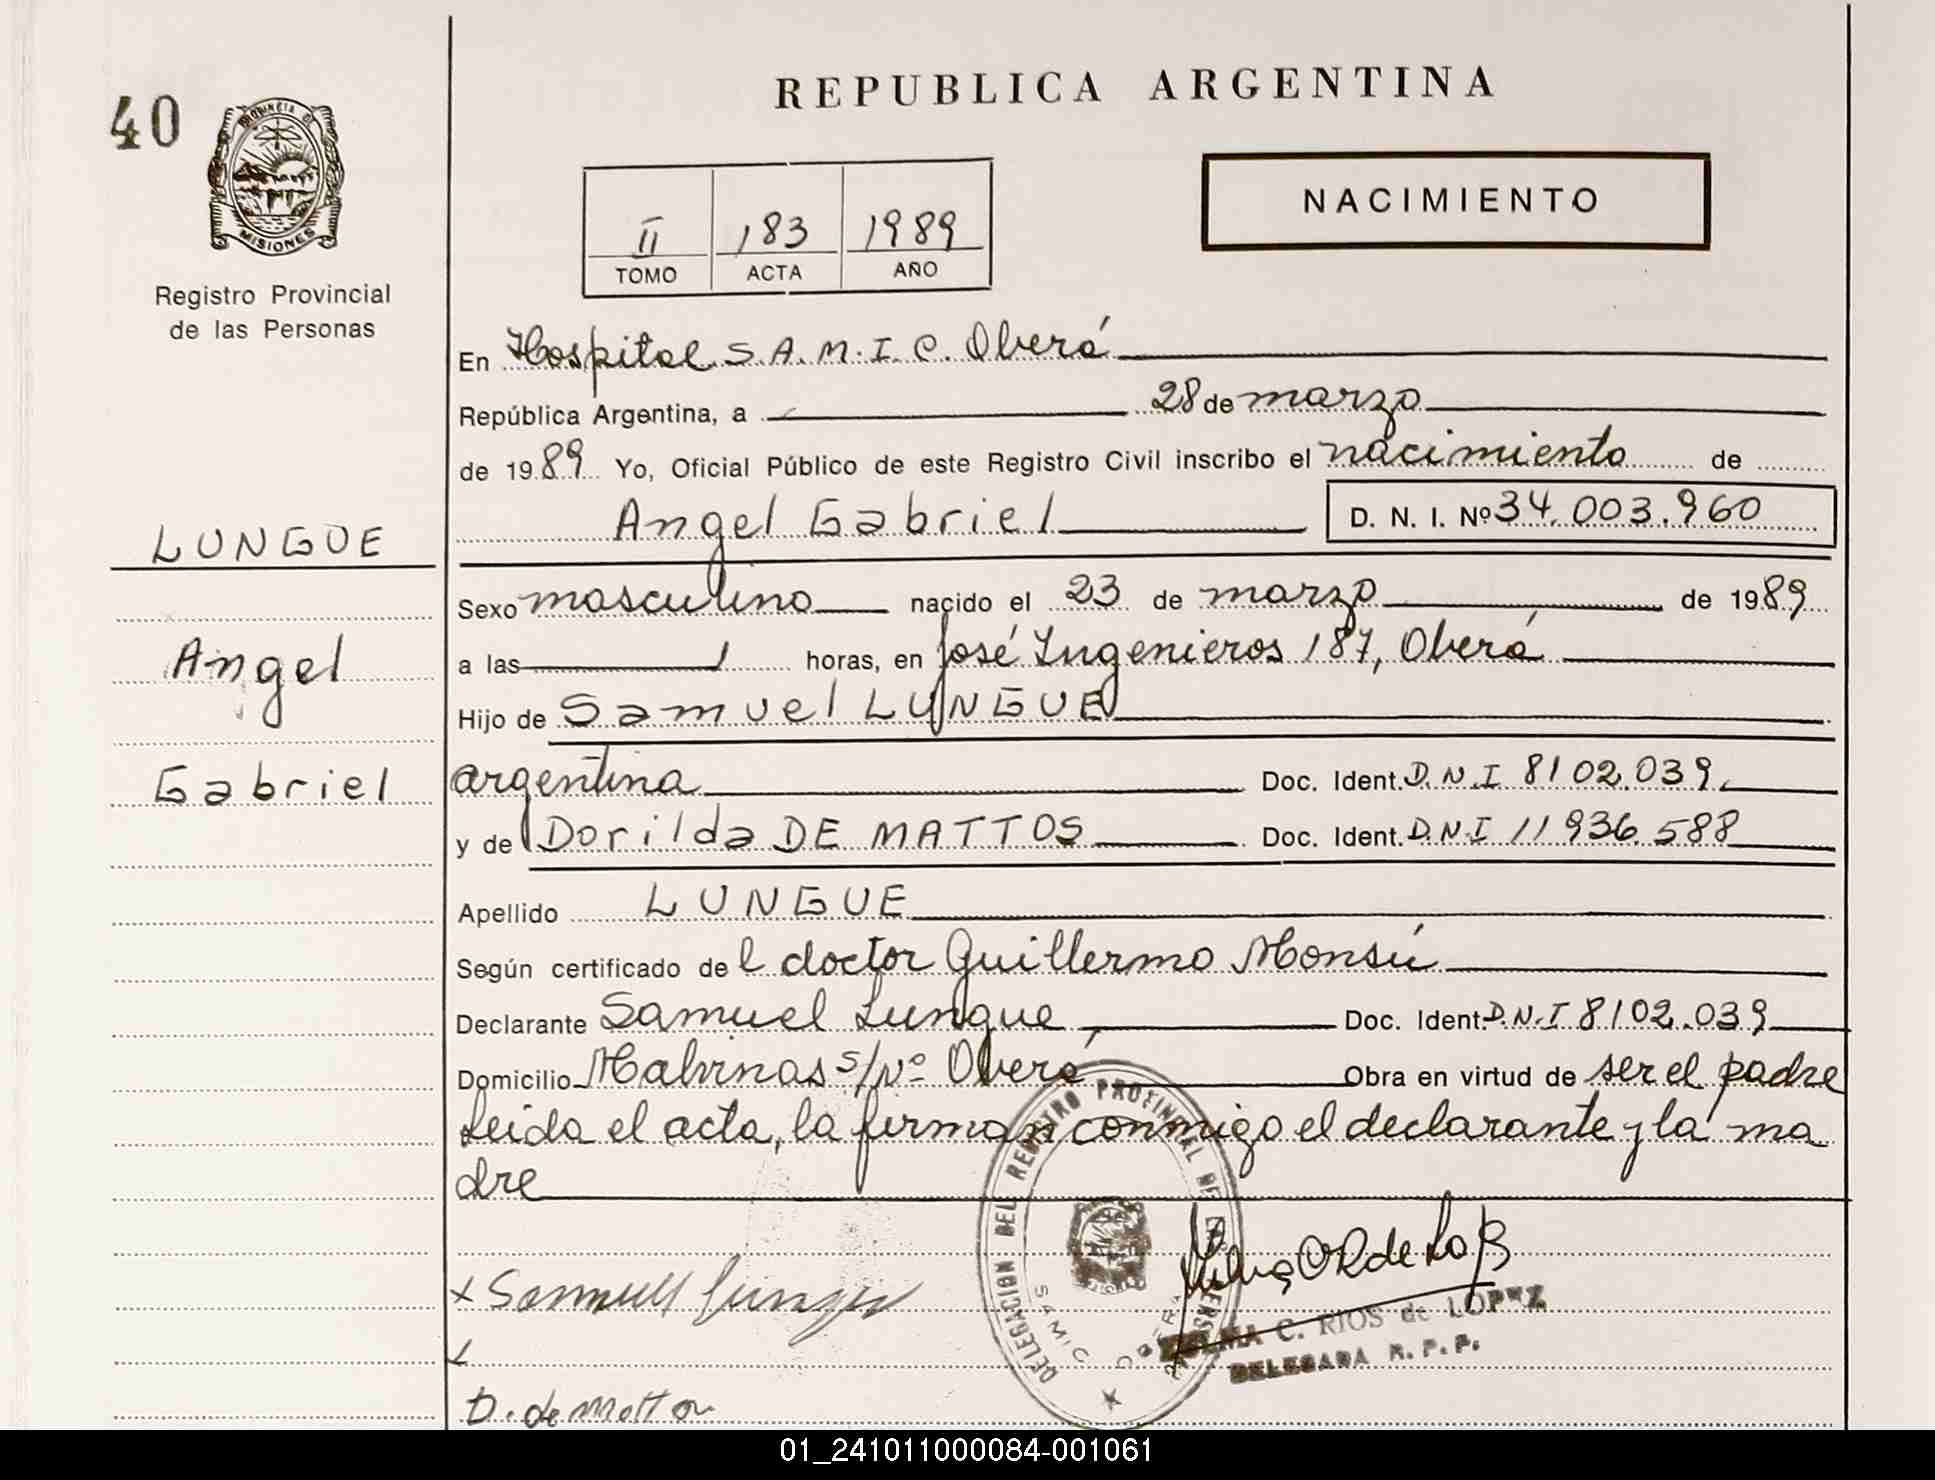 40
PROVINCIA DE
MISIONES
Registro Provincial
de las Personas
LUNGUE
Angel
Gabriel
REPUBLICA ARGENTINA
II 183 1989
TOMO ACTA AÑO
NACIMIENTO
En Hospital S.A.M.I.C. Oberá
República Argentina, a 28 de marzo
de 1989 Yo, Oficial Público de este Registro Civil inscribo el nacimiento de
Angel Gabriel D. N. I. Nº 34.003.960
Sexo masculino nacido el 23 de marzo de 1989
a las 1 horas, en José Ingenieros 187, Oberá
Hijo de Samuel LUNGUE
argentina Doc. Ident. D.N.I 8102.039
y de Dorilda DE MATTOS Doc. Ident. D.N.I 11936.588
Apellido LUNGUE
Según certificado de l doctor Guillermo Monsú
Declarante Samuel Lungue, Doc. Ident. D.N.I 8102.039
Domicilio Malvinas s/Nº Oberá Obra en virtud de ser el padre
Leida el acta, la firman conmigo el declarante y la ma
dre
DELEGACION DEL REGISTRO PROVINCIAL DE
SAMIC
C. RIOS de LOPEZ
DELEGADA R. P. P.
D. de Matto
01_241011000084-001061